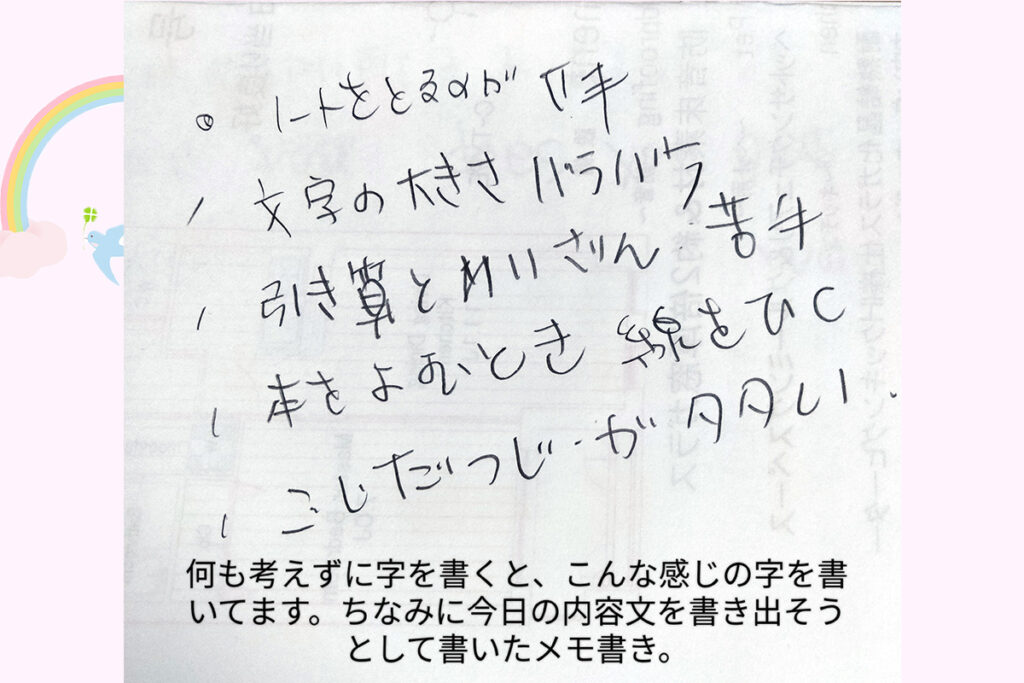 ◎ ノートをとるのが 下手
/ 文字の大きさ バラバラ
/ 引き算とけいさん 苦手
/ 本をよむとき 線をひく
/ ごじだつじ・が 多い.
何も考えずに字を書くと、こんな感じの字を書
いてます。ちなみに今日の内容文を書き出そう
として書いたメモ書き。